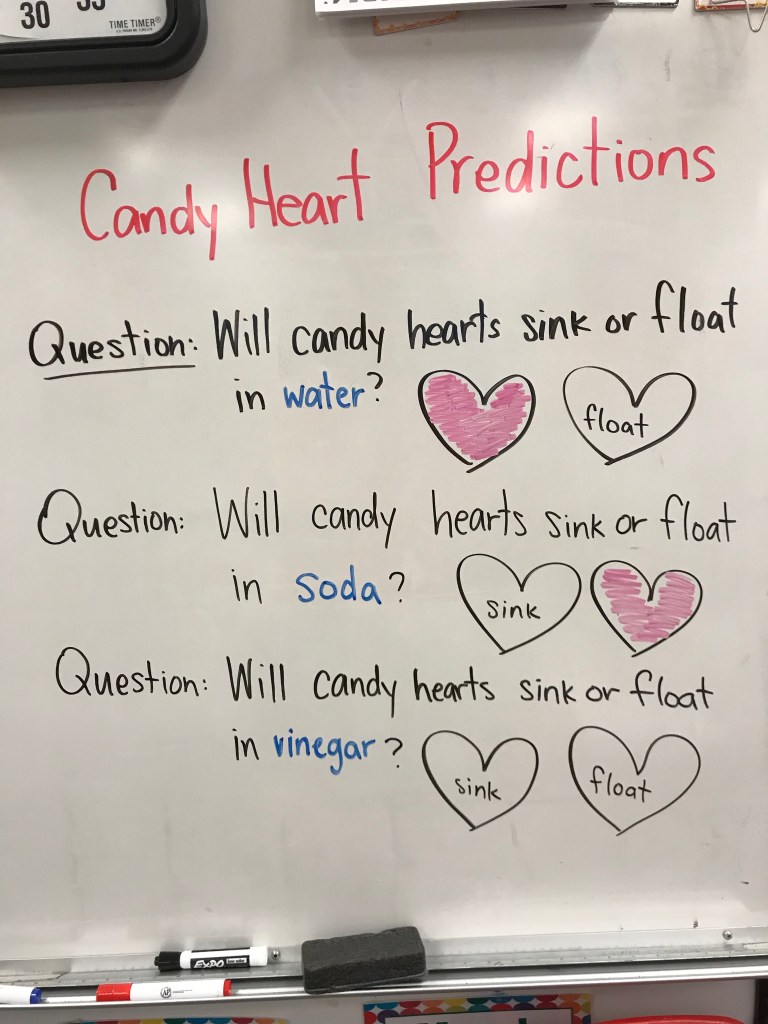 30
TIME TIMER®
Candy Heart Predictions
Question: Will candy hearts sink or float
in water? float
Question: Will candy hearts sink or float
in soda? sink
Question: Will candy hearts sink or float
in vinegar? sink float
EXPO